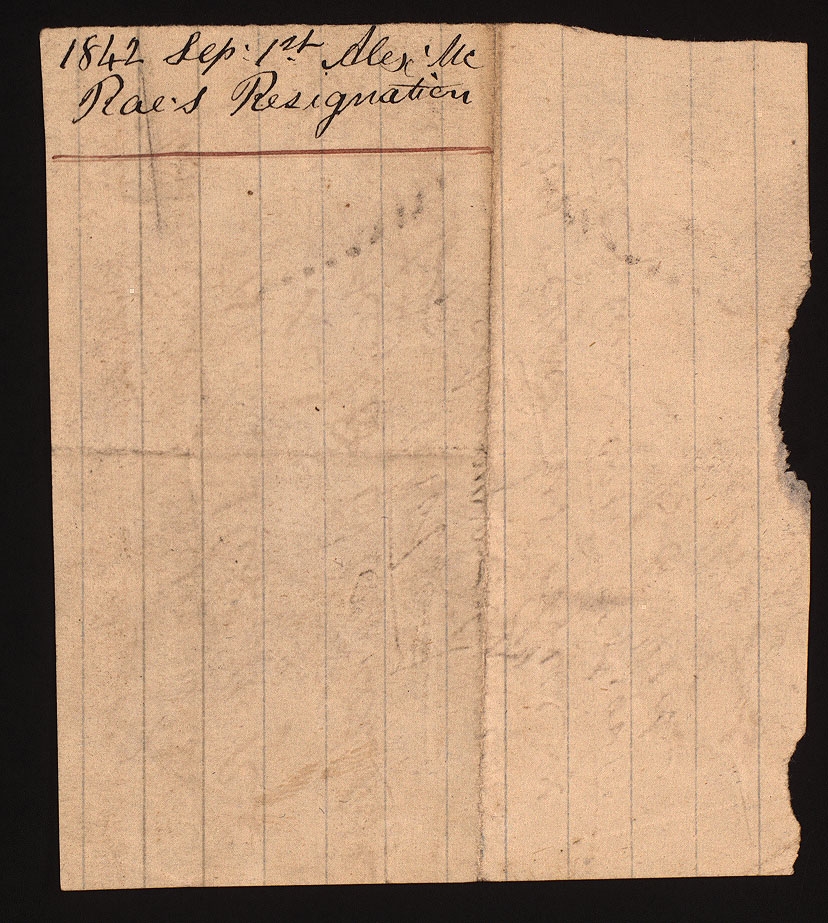 1842 Sep: 1st Alexr Mc
Rae's Resignation